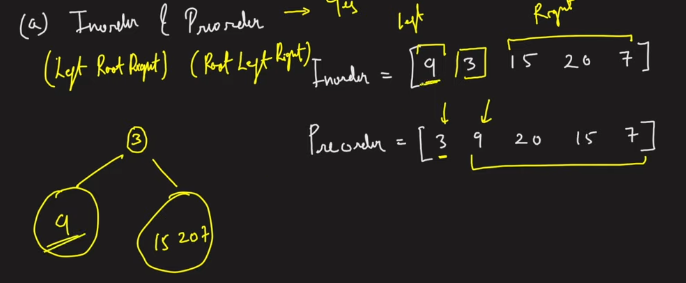 (a) Inorder & Preorder → Yes
Left Right
(Left Root Right) (Root Left Right)
Inorder = [ 9 3 15 20 7 ]
Preorder = [ 3 9 20 15 7 ]
3
9 15 20 7